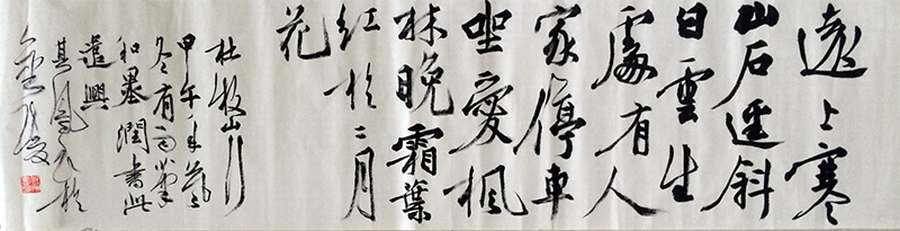 遠上寒
山石逕斜
白雲生
處有人
家停車
坐愛楓
林晚霜葉
紅於二月
花
杜牧山行
甲午年
冬有雨筆
和墨潤書此
遣興